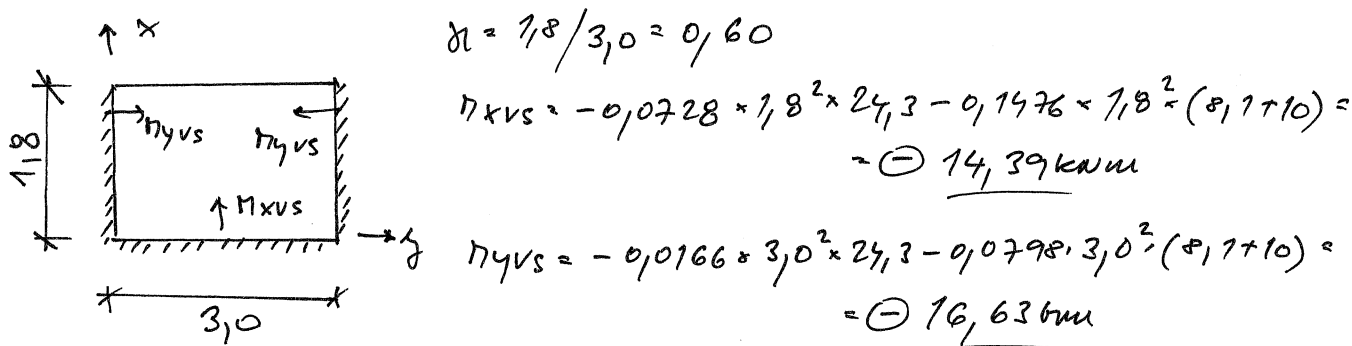 x
1,8
Myvs
Myvs
Mxvs
y
3,0
γ = 1,8/3,0 = 0,60
Mxvs = -0,0728 * 1,8² * 24,3 - 0,1476 * 1,8² * (8,1+10) =
= ⊖ 14,39 kNm
Myvs = -0,0166 * 3,0² * 24,3 - 0,0798 · 3,0² · (8,1+10) =
= ⊖ 16,63 kNm